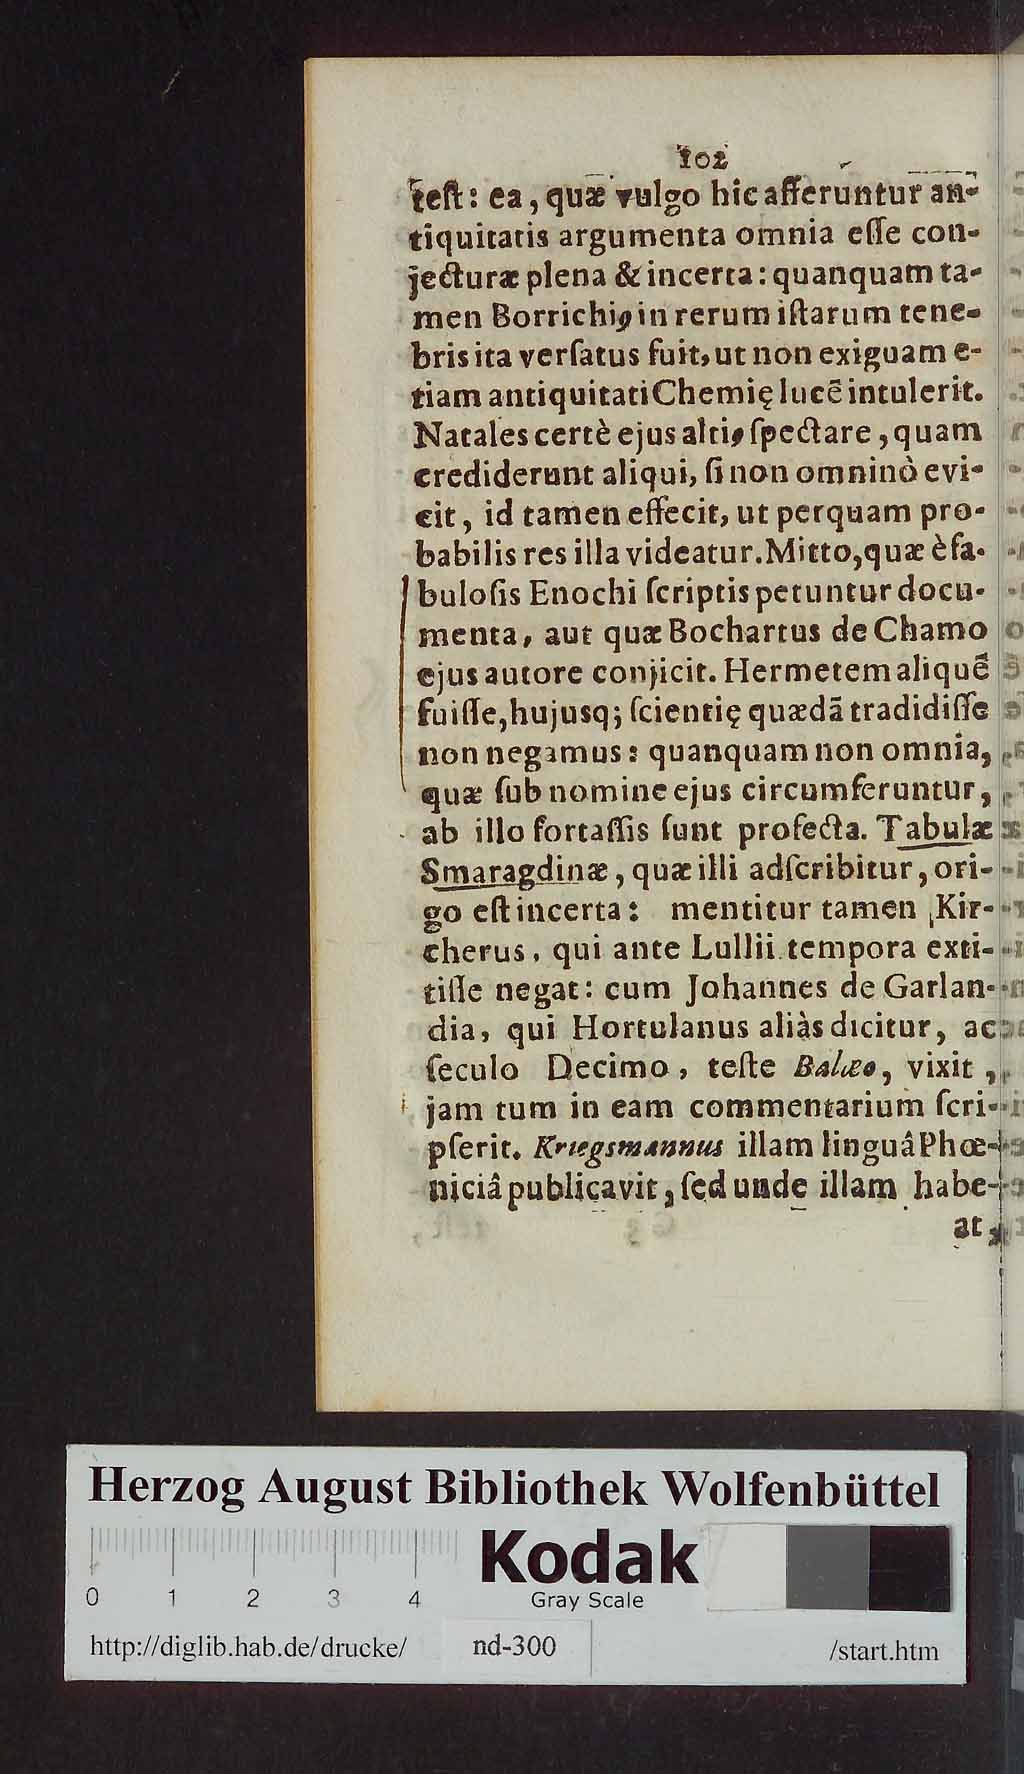 102
test: ea, quæ vulgo hic afferuntur an-
tiquitatis argumenta omnia esse con-
jecturæ plena & incerta: quanquam ta-
men Borrichiꝰ in rerum istarum tene-
bris ita versatus fuit, ut non exiguam e-
tiam antiquitati Chemię lucē intulerit.
Natales certè ejus altiꝰ spectare, quam
crediderunt aliqui, si non omninò evi-
cit, id tamen effecit, ut perquam pro-
babilis res illa videatur. Mitto, quæ è fa-
bulosis Enochi scriptis petuntur docu-
menta, aut quæ Bochartus de Chamo
ejus autore conjicit. Hermetem aliquē
fuisse, hujusq; scientię quædā tradidisse
non negamus: quanquam non omnia,
quæ sub nomine ejus circumferuntur,
ab illo fortassis sunt profecta. Tabulæ
Smaragdinæ, quæ illi adscribitur, ori-
go est incerta: mentitur tamen Kir-
cherus, qui ante Lullii tempora exti-
tisse negat: cum Johannes de Garlan-
dia, qui Hortulanus aliàs dicitur, ac
seculo Decimo, teste Balæo, vixit,
jam tum in eam commentarium scri-
pserit. Kriegsmannus illam linguâ Phœ-
niciâ publicavit, sed unde illam habe-
at,
Herzog August Bibliothek Wolfenbüttel
Kodak
Gray Scale
0 1 2 3 4
http://diglib.hab.de/drucke/ nd-300 /start.htm